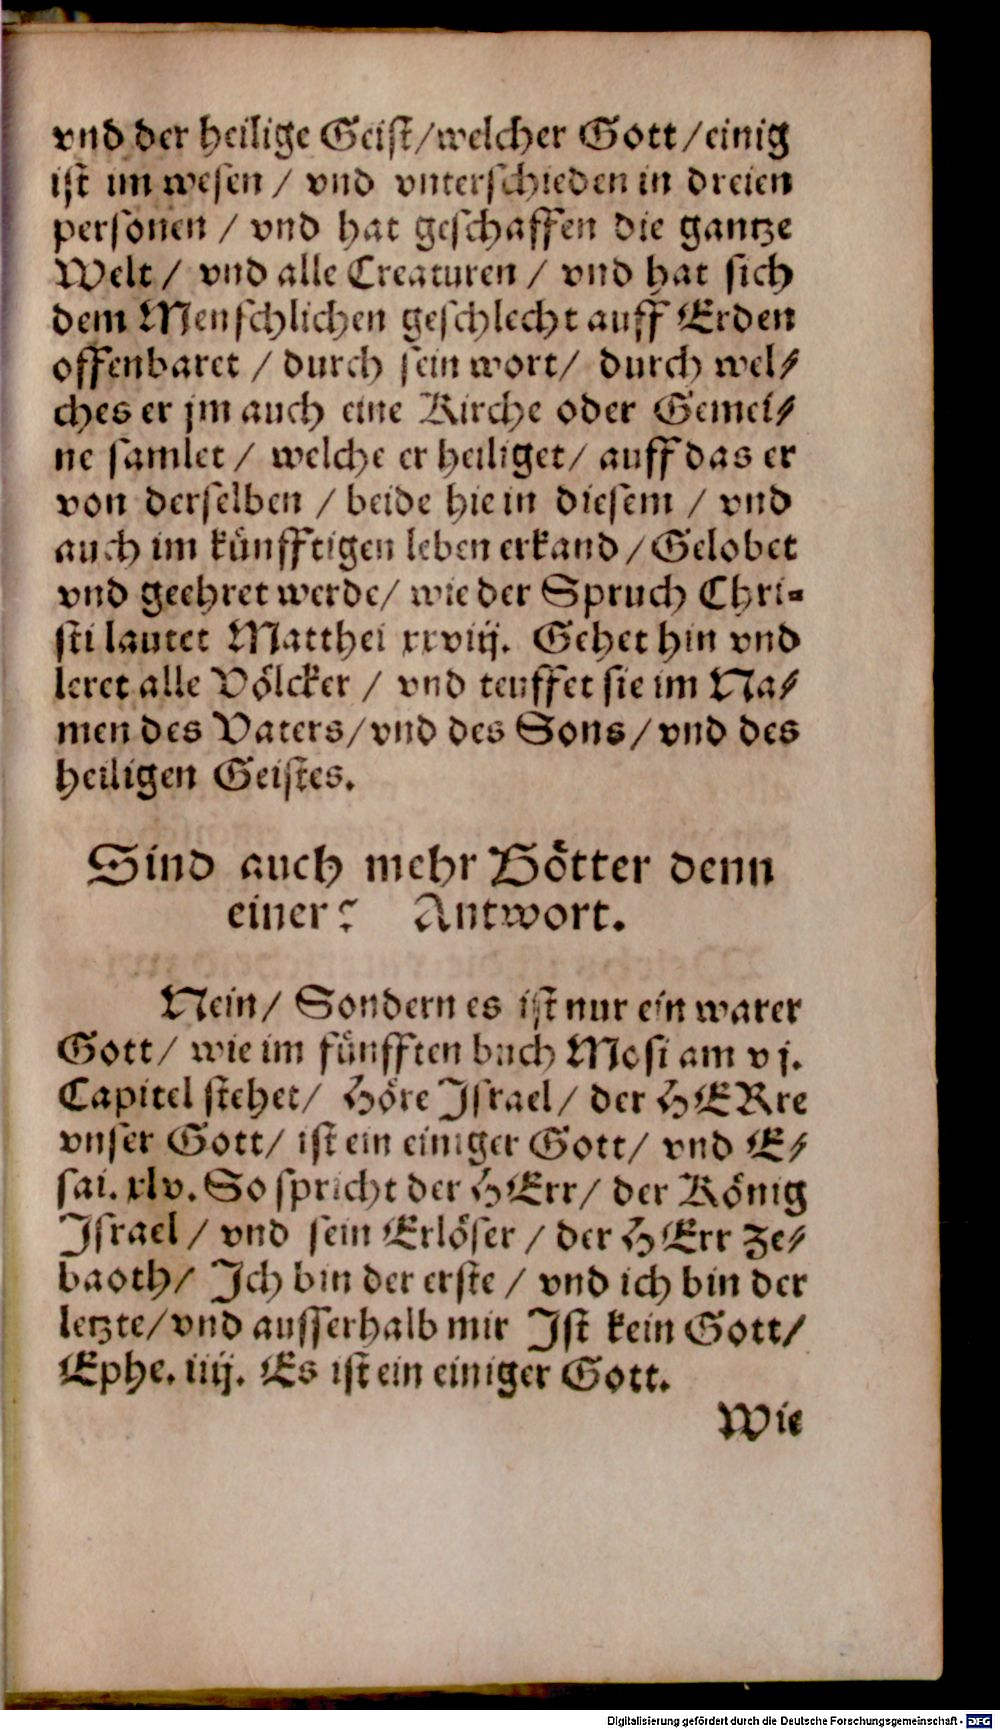 vnd der heilige Geist/welcher Gott/einig
ist im wesen / vnd vnterschieden in dreien
personen / vnd hat geschaffen die gantze
Welt / vnd alle Creaturen / vnd hat sich
dem Menschlichen geschlecht auff Erden
offenbaret / durch sein wort/ durch wel⸗
ches er jm auch eine Kirche oder Gemei⸗
ne samlet / welche er heiliget/ auff das er
von derselben / beide hie in diesem / vnd
auch im künfftigen leben erkand /Gelobet
vnd geehret werde/ wie der Spruch Chri-
sti lautet Matthei xxviij. Gehet hin vnd
leret alle Völcker / vnd teuffet sie im Na⸗
men des Vaters/vnd des Sons/vnd des
heiligen Geistes.
Sind auch mehr Götter denn
einer? Antwort.
Nein/ Sondern es ist nur ein warer
Gott/ wie im fünfften buch Mosi am vj.
Capitel stehet/ Höre Israel/ der HERre
vnser Gott/ ist ein einiger Gott/ vnd E⸗
sai. xlv. So spricht der HErr/ der König
Israel / vnd sein Erlöser / der HErr Ze⸗
baoth/ Ich bin der erste / vnd ich bin der
letzte/vnd ausserhalb mir Ist kein Gott/
Ephe. iiij. Es ist ein einiger Gott.
Wie
Digitalisierung gefördert durch die Deutsche Forschungsgemeinschaft - DFG